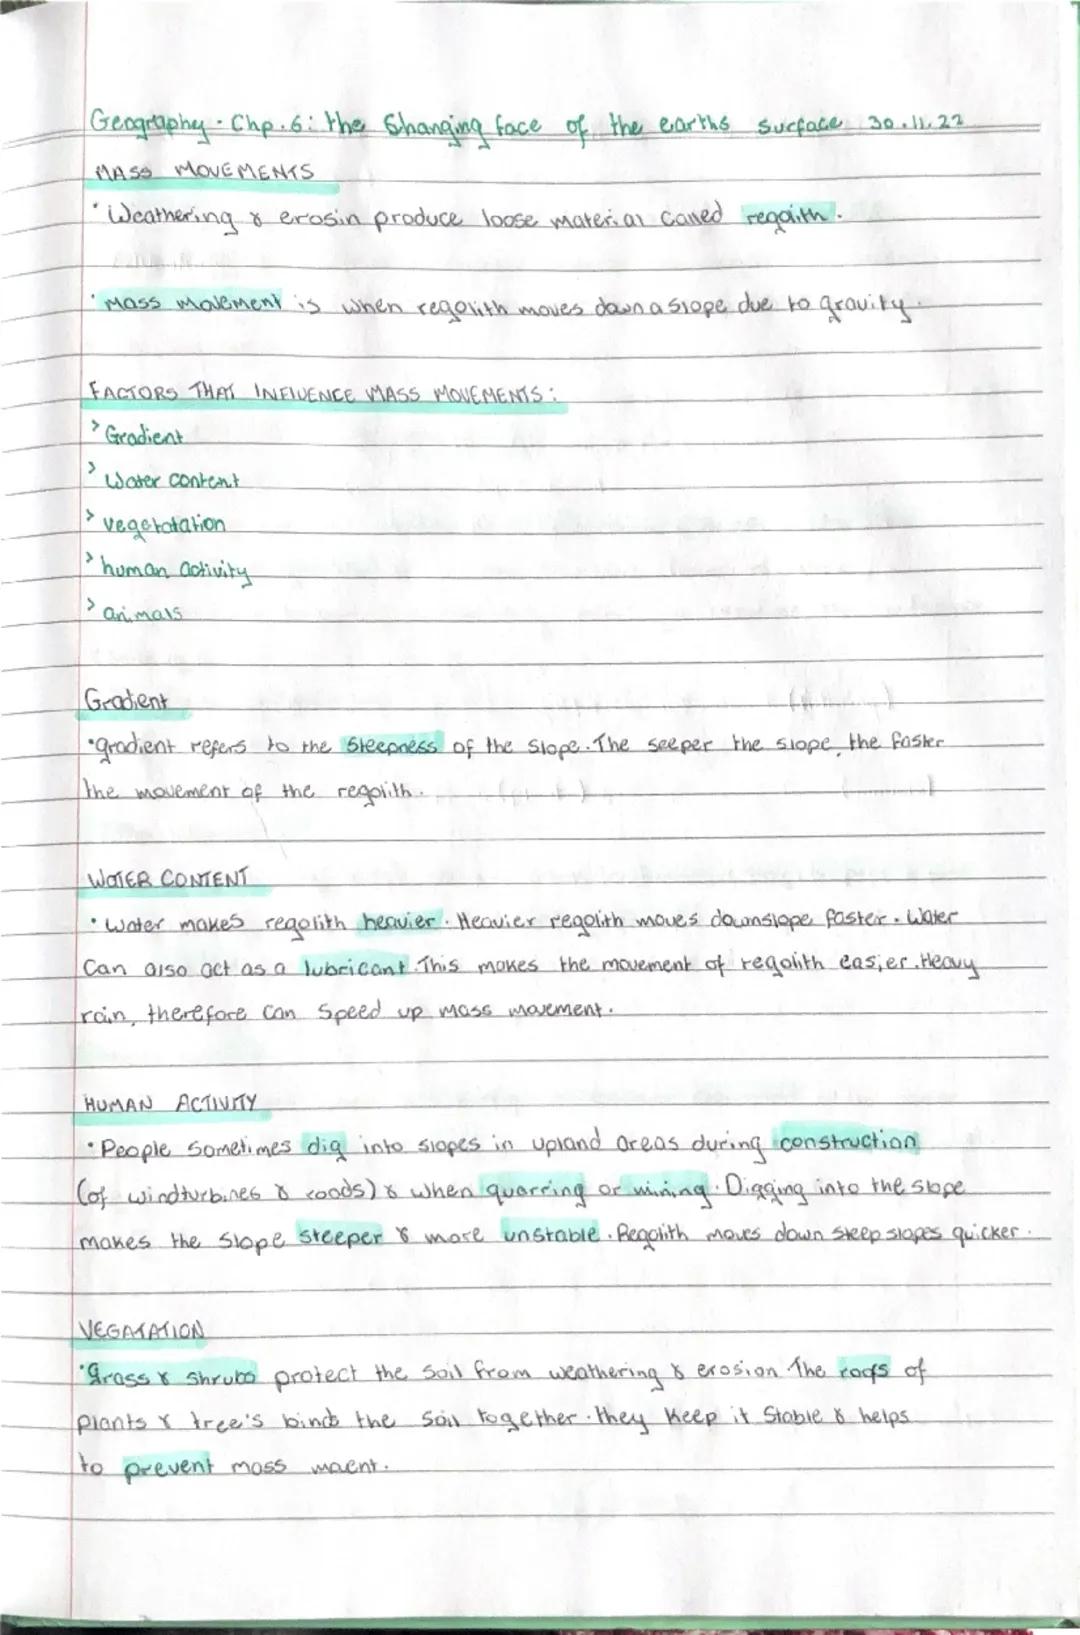 Geography · Chp. 6: the Changing face of the earths surface 30.11.22
MASS MOVEMENTS
• Weathering & erosin produce loose material called regoith.
• Mass movement is when regolith moves down a slope due to gravity.
FACTORS THAT INFLUENCE MASS MOVEMENTS:
> Gradient
> Water content
> vegetatation
> human activity
> animals
Gradient
• gradient refers to the steepness of the slope. The seeper the slope, the faster
the movement of the regolith.
WATER CONTENT
• Water makes regolith heavier. Heavier regolith moves downslope faster. Water
can also act as a lubricant. This makes the movement of regolith easier. Heavy
rain, therefore can speed up mass movement.
HUMAN ACTIVITY
• People sometimes dig into slopes in upland areas during construction
(of windturbines & roads) & when quarring or mining. Digging into the slope
makes the slope steeper & more unstable. Regolith moves down steep slopes quicker.
VEGATATION
• Grass & shrubs protect the soil from weathering & erosion. The roofs of
plants & tree's binds the soil together. they keep it stable & helps
to prevent mass maent.